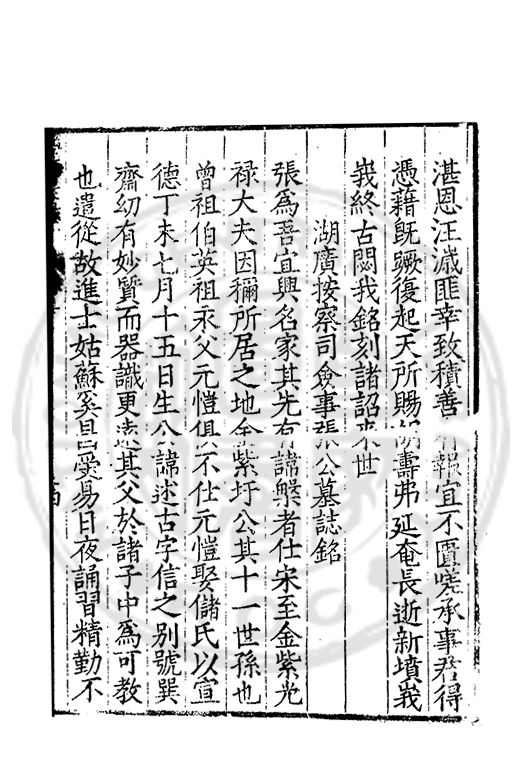 湛恩汪濊匪幸致積善有報宜不匱嗟承事君得
憑藉既蹶復起天所賜胡壽弗延奄長逝新墳峩
峩終古閟我銘刻諸詔來世
湖廣按察司僉事張公墓誌銘
張爲吾宜興名家其先有諱槩者仕宋至金紫光
祿大夫因稱所居之地金紫圩公其十一世孫也
曾祖伯英祖永父元愷俱不仕元愷娶儲氏以宣
德丁未七月十五日生公諱述古字信之别號巽
齋幼有妙質而器識更遠其父於諸子中爲可教
也遣從故進士姑蘇奚昌受易日夜誦習精勤不